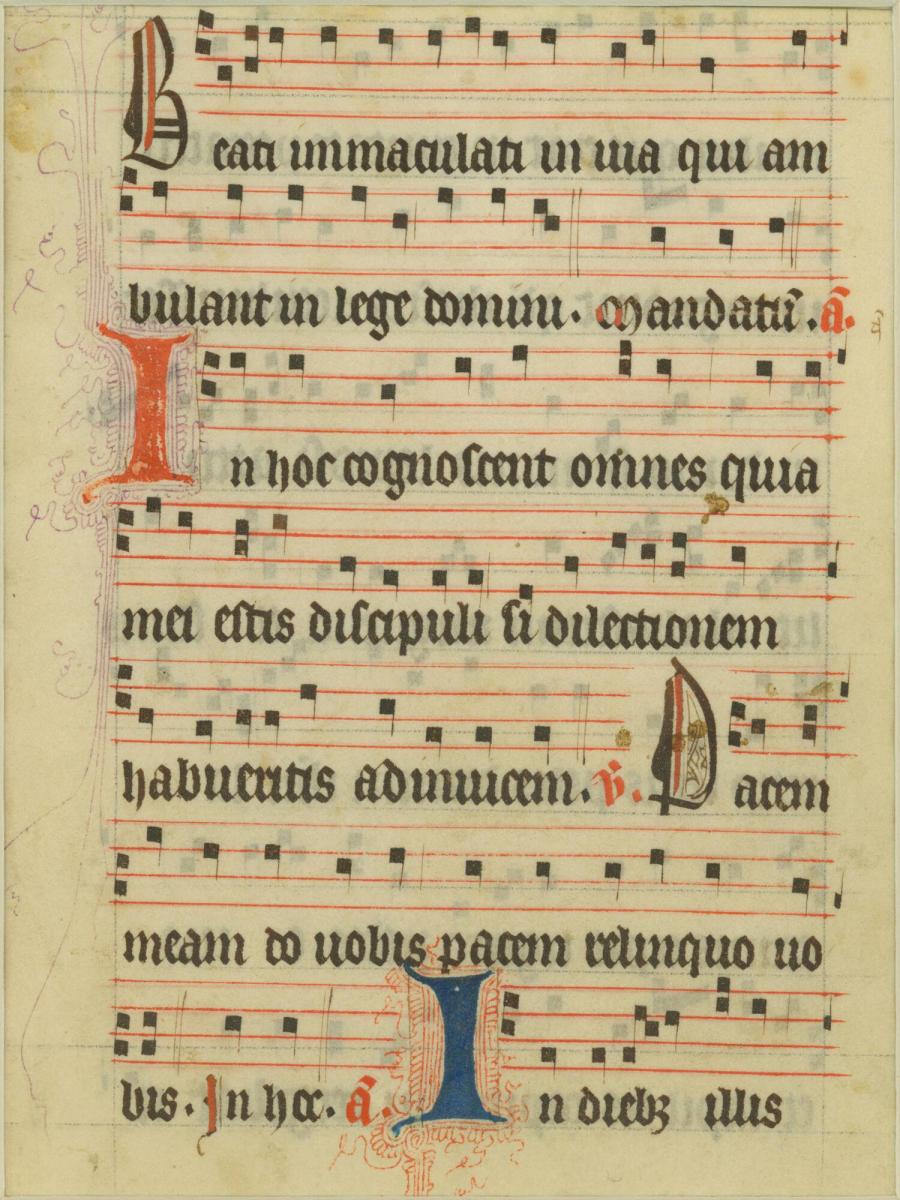 Beati immaculati in uia qui am
bulant in lege domini. Mandatū. ā.
In hoc cognoscent om̄nes quia
mei estis discipuli si dilectionem
habueritis adinuicem. v̄. Pacem
meam do uobis pacem relinquo uo
bis. In hoc. ā. In diebꝫ illis